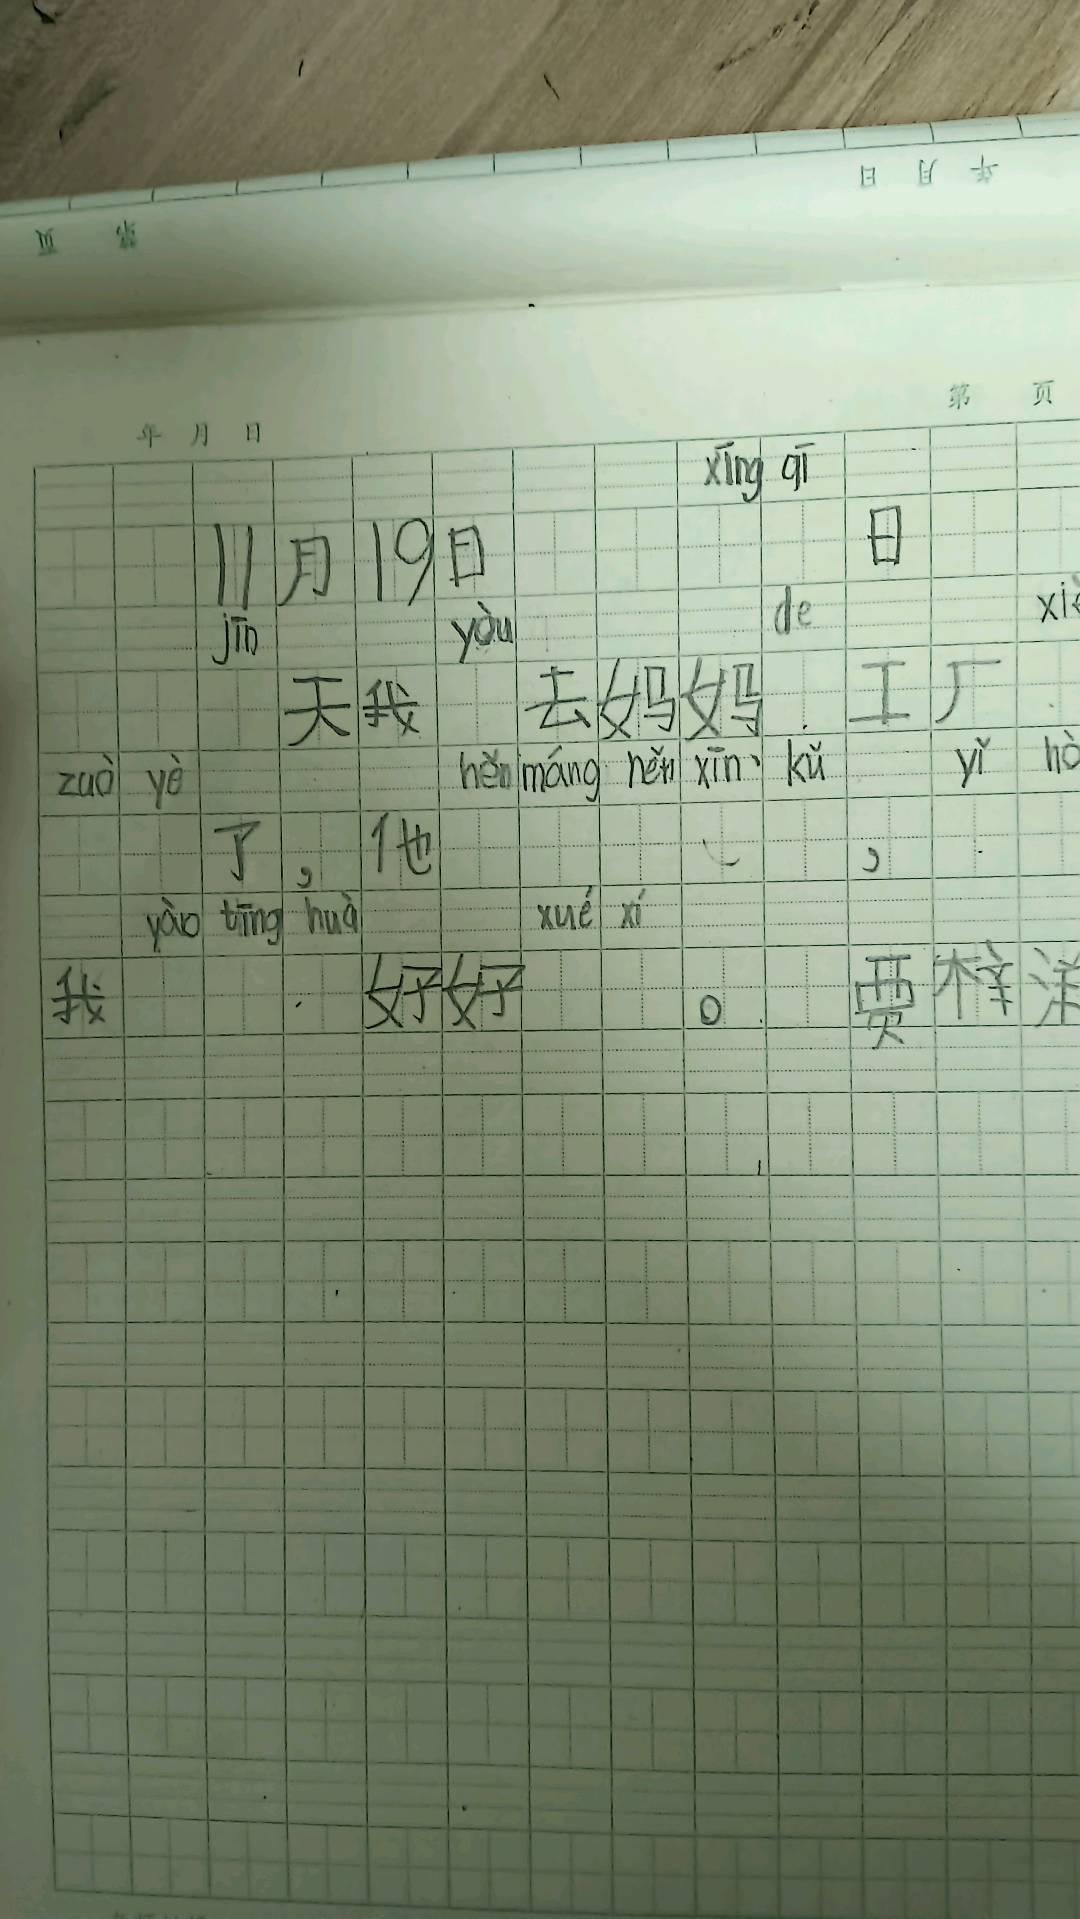 日 月 年
页 第
第 页
年 月 日
xīng qī
11月19日 日
jīn yòu de
天我 去妈妈 工厂
zuò yè hěn máng hěn xīn kǔ yǐ
了，他 ，
yào tīng huà xué xí
我 好好 。 贾梓